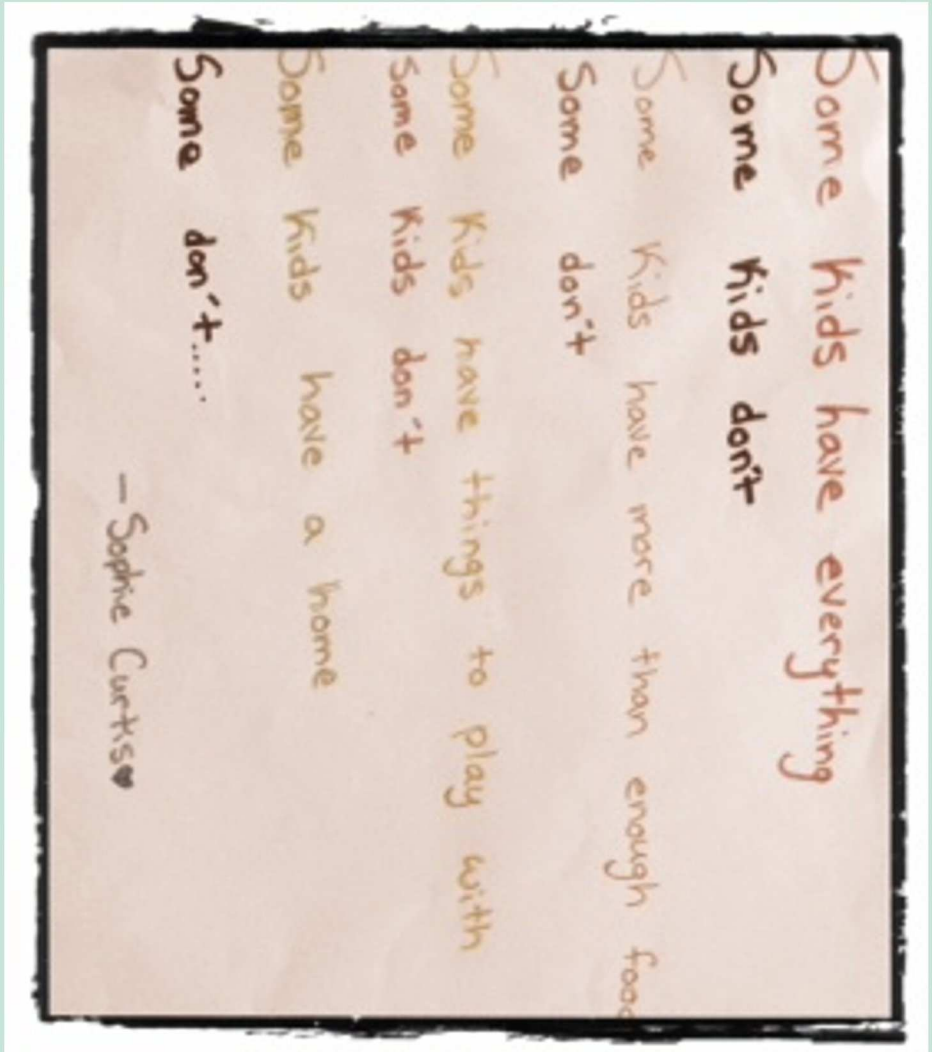 Some kids have everything
Some kids don't
Some kids have more than enough food
Some don't
Some kids have things to play with
Some kids don't
Some kids have a home
Some don't.....
— Sophie Curtis♥